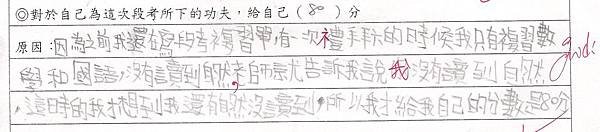 ◎對於自己為這次段考所下的功夫,給自己(80)分
原因:因為之前我還在寫段考複習單,有一次禮拜天的時候我只有複習數
學和國語,沒有讀到自然,老師就告訴我說我沒有讀到自然
,這時的我才想到我還有自然沒讀到,所以我才給我自己的分數是80分